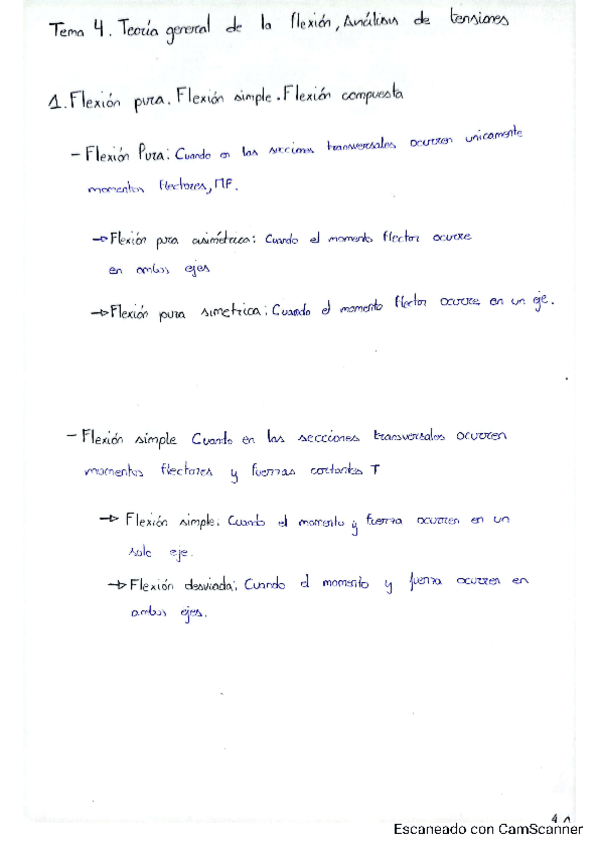 Tema 4. Teoría general de la flexión, Análisis de tensiones
1. Flexión pura. Flexión simple. Flexión compuesta
- Flexión Pura: Cuando en las secciones transversales ocurren unicamente
momentos flectores, MF.
→ Flexión pura asimétrica: Cuando el momento flector ocurre
en ambos ejes
→ Flexión pura simetrica: Cuando el momento flector ocurre en un eje.
- Flexión simple Cuando en las secciones transversales ocurren
momentos flectores y fuerzas cortantes T
→ Flexión simple: Cuando el momento y fuerza ocurren en un
solo eje.
→ Flexión desviada: Cuando el momento y fuerza ocurren en
ambos ejes.
Escaneado con CamScanner